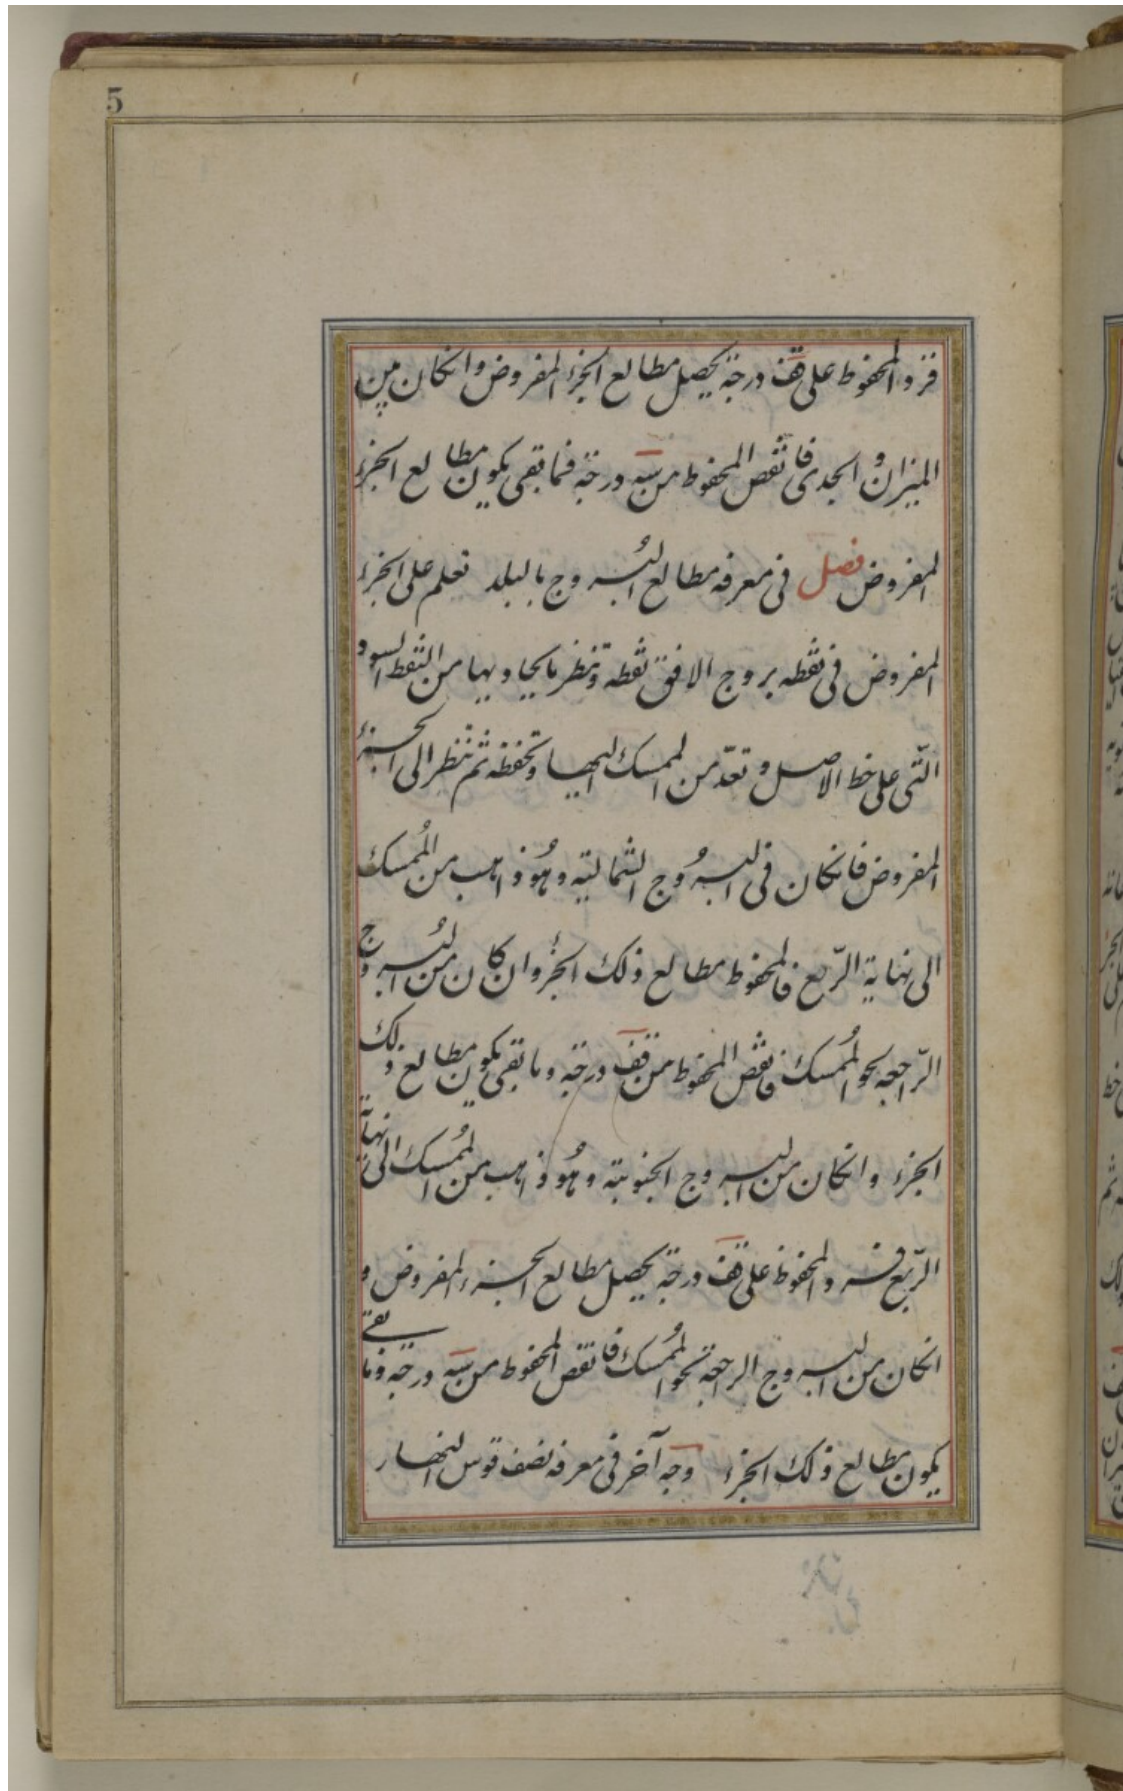 5
فزد المحفوظ على قف درجة يحصل مطالع الجزء المفروض وانكان بين
الميزان والجدى فانقص المحفوظ من شسه درجة فما بقى يكون مطالع الجزء
المفروض فصل فى معرفه مطالع البروج بالبلد تعلم على الجزء
المفروض فى نقطه بروج الافق نقطه وتنظر ما يحاويها من النقط السود
التّى على خط الاصل وتعدّ من الممسك اليها وتحفظه ثم تنظر الى الجزء
المفروض فانكان فى البروج الشماليه وهو ذاهب من الممسك
الى نهاية الرّبع فالمحفوظ مطالع ذلك الجزء وان كان من البروج
الرّاجعه نحو الممسك فانقص المحفوظ من قف درجه وما بقى يكون مطالع ذلك
الجزء وانكان من البروج الجنوبية وهو ذاهب من الممسك الى نهاية
الرّبع فزد المحفوظ على قف درجة يحصل مطالع الجزء المفروض و
انكان من البروج الراجعة نحو الممسك فانقص المحفوظ من درجه وما بقى
يكون مطالع ذلك الجزء وجه آخر فى معرفه نصف قوس النهار